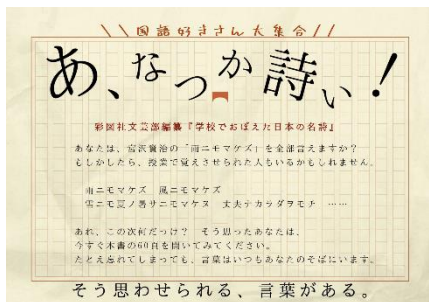 \\国語好きさん大集合//
あ、なつか詩い！
彩図社文芸部編纂『学校でおぼえた日本の名詩』
あなたは、宮沢賢治の「雨ニモマケズ」を全部言えますか？
もしかしたら、授業で覚えさせられた人もいるかもしれません。
雨ニモマケズ　風ニモマケズ
雪ニモ夏ノ暑サニモマケヌ　丈夫ナカラダヲモチ　……
あれ、この次何だっけ？　そう思ったあなたは、
今すぐ本書の60頁を開いてみてください。
たとえ忘れてしまっても、言葉はいつもあなたのそばにいます。
そう思わせられる、言葉がある。